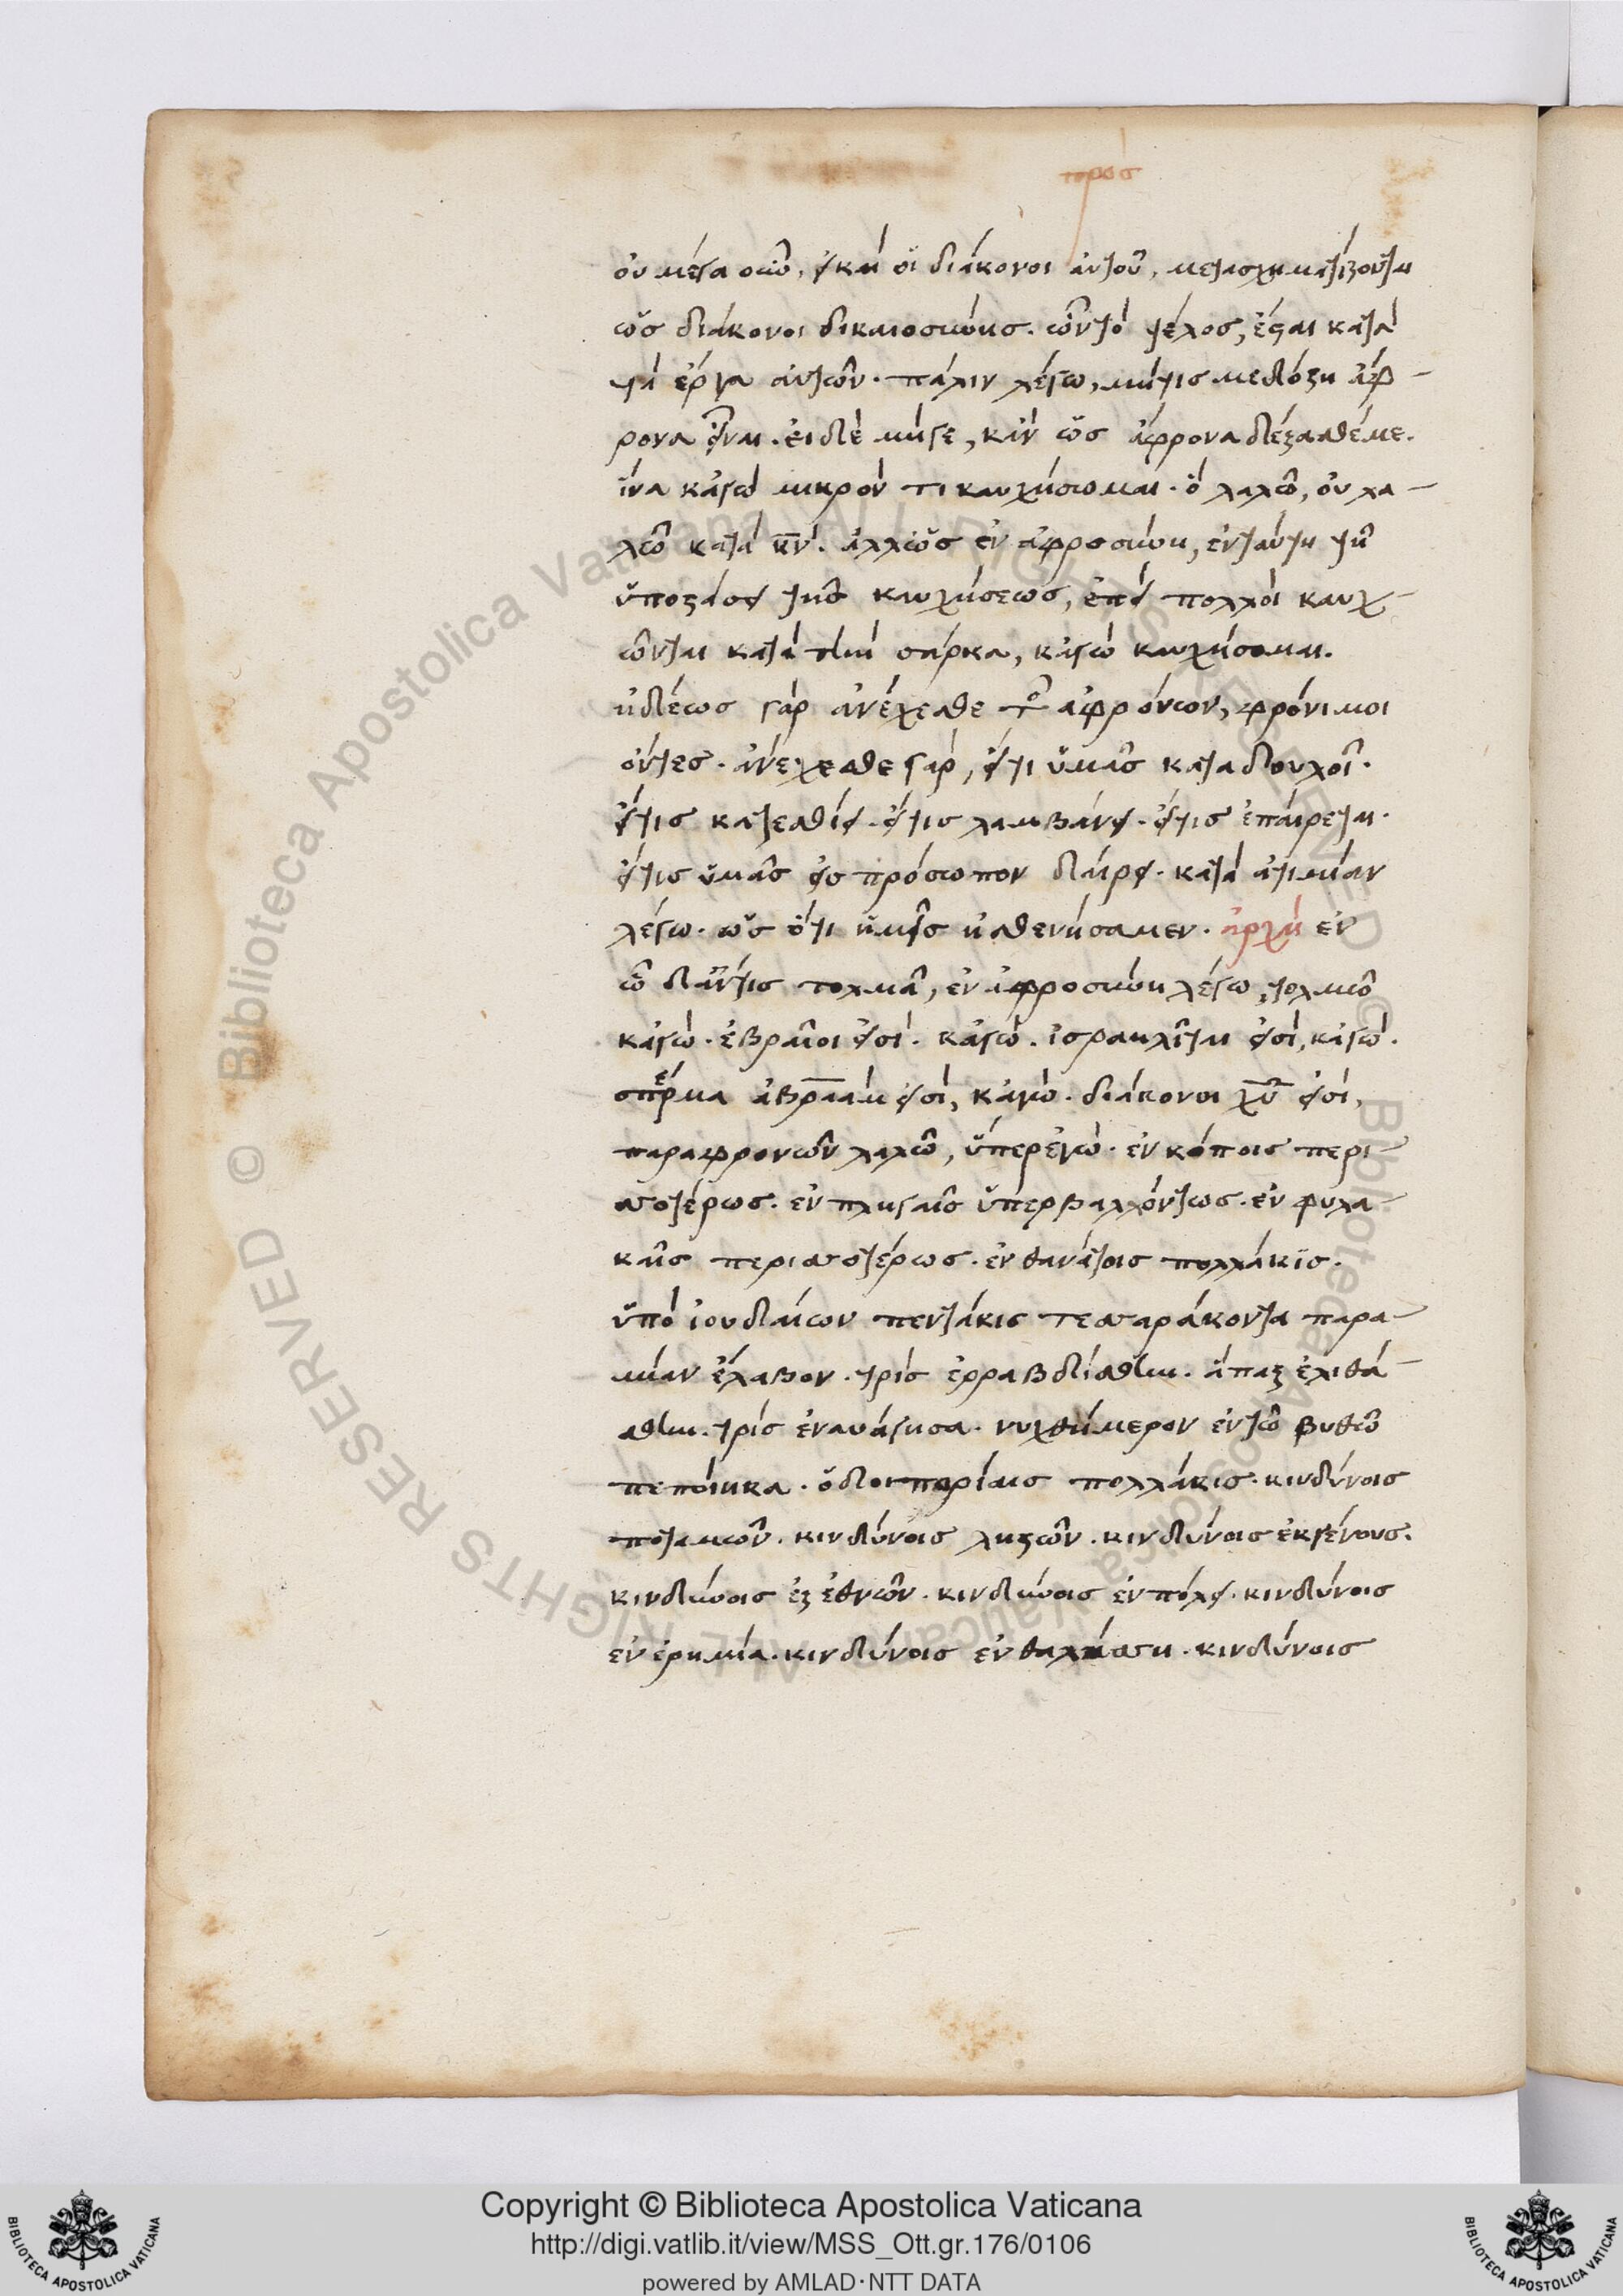 πρὸσ
οὐ μέγα οὖν, εἰ καὶ οἱ διάκονοι αὐτοῦ, μετασχηματίζονται
ὡς διάκονοι δικαιοσύνης. ὧν τὸ τέλος, ἔσται κατὰ
τὰ ἔργα αὐτῶν. πάλιν λέγω, μήτις με δόξη ἄφ-
ρονα εἶναι. εἰ δὲ μήγε, κἂν ὡς ἄφρονα δέξασθέ με.
ἵνα κἀγὼ μικρόν τι καυχήσωμαι. ὃ λαλῶ, οὐ λα-
λῶ κατὰ κν. ἀλλ' ὡς ἐν ἀφροσύνη, ἐν ταύτη τῆ
ὑποστάσει τῆς καυχήσεως, ἐπεὶ πολλοὶ καυχ-
ῶνται κατὰ τὴν σάρκα, κἀγὼ καυχήσομαι.
ἡδέως γὰρ ἀνέχεσθε τῶν ἀφρόνων, φρόνιμοι
ὄντες. ἀνέχεσθε γὰρ, εἴ τι ὑμᾶς καταδουλοῖ.
εἴ τις κατεσθίει. εἴ τις λαμβάνει. εἴ τις ἐπαίρεται.
εἴ τις ὑμᾶς εἰς πρόσωπον δαίρει. κατὰ ἀτιμίαν
λέγω. ὡς ὅτι ἡμεῖς ἠσθενήσαμεν. ἀρχὴ ἐν
ὧ δ' ἄν τις τολμᾶ, ἐν ἀφροσύνη λέγω, τολμῶ
κἀγώ. ἑβραῖοι εἰσί. κἀγώ. ἰσραηλῖται εἰσί, κἀγώ.
σπέρμα ἀβραάμ εἰσί, κἀγώ. διάκονοι χυ εἰσί,
παραφρονῶν λαλῶ, ὑπὲρ ἐγώ. ἐν κόποις περι-
σσοτέρως. ἐν πληγαῖς ὑπερβαλλόντως. ἐν φυλα-
καῖς περισσοτέρως. ἐν θανάτοις πολλάκις.
ὑπὸ ἰουδαίων πεντάκις τεσσαράκοντα παρα-
μίαν ἔλαβον. τρὶς ἐρραβδίσθην. ἅπαξ ἐλιθά-
σθην. τρὶς ἐναυάγησα. νυχθήμερον ἐν τῶ βυθῶ
πεποίηκα. ὁδοιπορίαις πολλάκις. κινδύνοις
ποταμῶν. κινδύνοις ληστῶν. κινδύνοις ἐκ γένους.
κινδύνοις ἐξ ἐθνῶν. κινδύνοις ἐν πόλει. κινδύνοις
ἐν ἐρημία. κινδύνοις ἐν θαλάσση. κινδύνοις
Copyright © Biblioteca Apostolica Vaticana
http://digi.vatlib.it/view/MSS_Ott.gr.176/0106
powered by AMLAD·NTT DATA
BIBLIOTECA APOSTOLICA VATICANA
BIBLIOTECA APOSTOLICA VATICANA
© Biblioteca Apostolica Vaticana ALL RIGHTS RESERVED
© Biblioteca Apostolica Vaticana ALL RIGHTS RESERVED